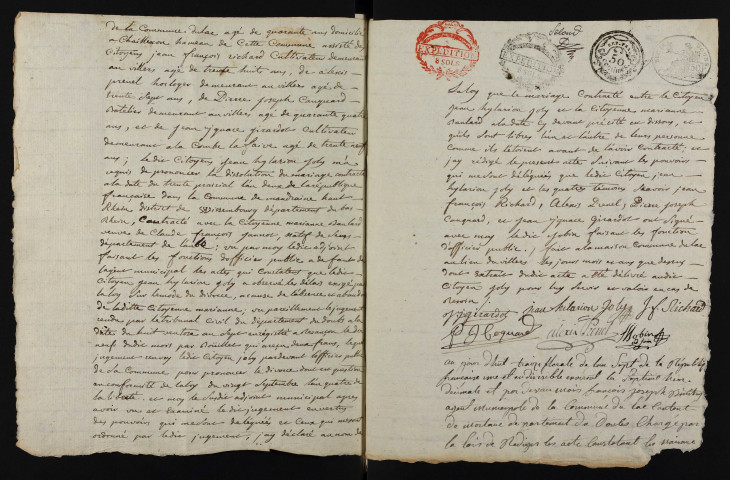 de la Commune dulac agé de quarante ans domicilié
a Chaillexon hameau de Cette Commune assisté des
Citoyens jean françois richard Cultivateur demeurant
au villers agé de trente huit ans, de alexis
prenel horloger demeurant au villers agé de
trente Sept ans, de Pierre Joseph Coquard
demeurant au villers agé de quarante quatre
ans, et de jean ygnace girardot Cultivateur
demeurant ala Combe agé de trente neuf
ans; ledit Citoyens jean hylarion joly m'a
requis de prononcer la dissolution du mariage contracté
ala date du trente prairial lan deux de la république
française dans la Commune de haut
Rhein district de Wissembourg département du bas
Rhein, Contracté avec la Citoyenne marianne baulard
veuve de Claude françois jannot natif de
département de ; vu par moy ledit adjoint
faisant les fonctions d'officier public a defaut de
lagent municipal les actes qui Constatent que ledit
Citoyen jean hylarion joly a observé les délais exigé par
laloy sur lenvoie du divorce, acause de labsence et abandon
de laditte Citoyenne marianne; vu pareillement le jugement
rendu par le tribunal Civil du département du doubs ala
date du huit ventose an Sept enregistré a besancon le dix
neuf dudit mois par qui a reçu deux francs, lequel
jugement renvoy ledit Citoyen joly pardevant l'officier public
de la Commune pour prononcer le divorce dont est question
en conformité de la loy du vingt Septembre lan quatre de
la liberté. et moy le Susdit adjoint municipal agres
avoir vu et Examiné le dit jugement en vertu
des pouvoirs qui me sont delegués et Ceux qui me sont
ordonné par ledit jugement, j'ay déclaré au nom de
EXPEDITION
8 SOLS
laloy que le mariage Contracté entre le Citoyen
jean hylarion joly et la Citoyenne marianne
baulard ala date cy devant précité est dissous, et
quils sont libres lun et lautre de leurs personne
comme ils létoient avant de lavoir Contracté, et
j'ay rédigé le present acte Suivant les pouvoirs
qui me sont délégués que ledit Citoyen jean
hylarion joly et les quatres témoins Scavoir jean
françois Richard, Alexis Prenel, Pierre Joseph
Coquard, et jean ygnace girardot ont Signé
avec moy ledit Mobin faisant les fonction
d'officier public; fait ala maison Commune dulac
au lieu du villers les jours mois et an que dessus
dont extrait dudit acte a été délivré audit
Citoyen joly pour luy Servir et valoir en cas de
besoin
jygirardot jean hilarion joly J f Richard
P J Coquard alexis Prenel Mobin
adjoint
au jour d'huit treize florale de lan Sept de la République
francaise une et indivisible environt la Septieme heure
decimale et par devant moi francois Joseph
agent municipale de la commune du lac Canton
de mortaue departement du Doubs Chargé par
la lois de Rediger les acte Constatent les naissance